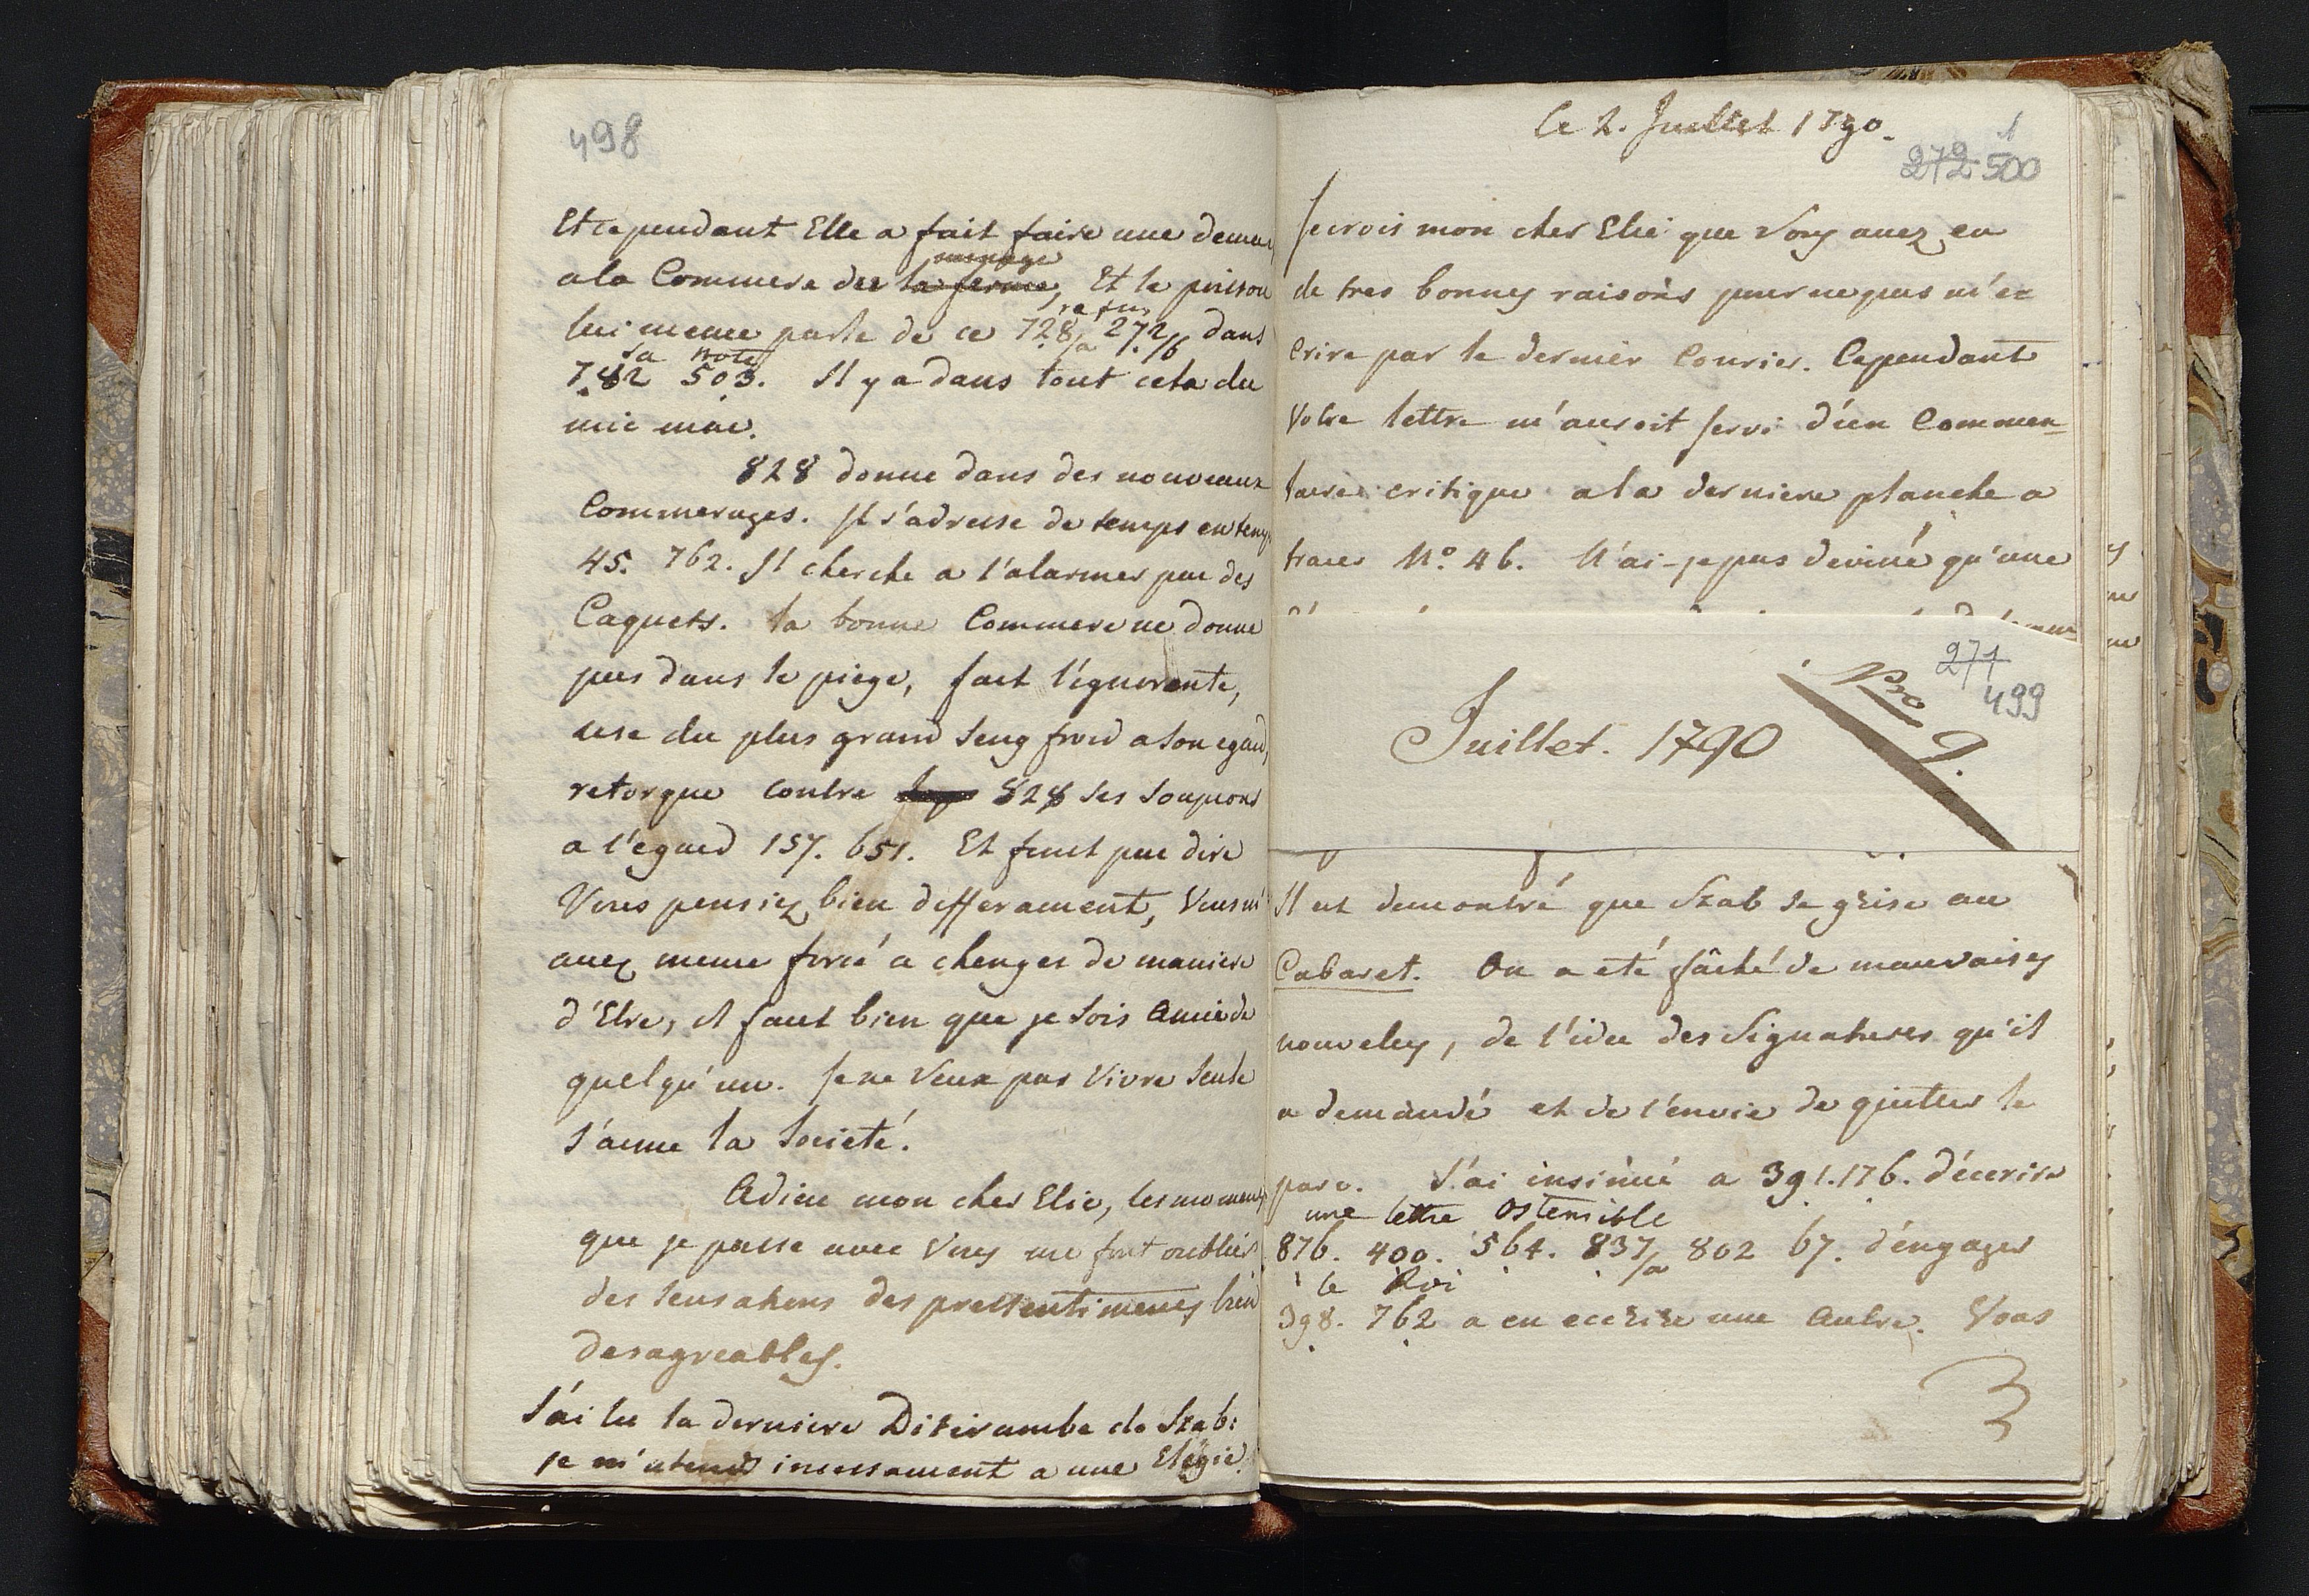 498
Et cependant Elle a fait faire une
a la Commere de la ferme, Et le poisson
menage
lui meme parle de ce 728/a 272/b dans
refus
782 503. Il y a dans tout cela du
sa note
mic mac.
828 donne dans des nouveaux
Commerages. Il s'adresse de temps en temps
45. 762. Il cherche a l'alarmer par des
Caquets. la bonne Commere ne donne
pas dans le piege, fait l'ignorante,
use du plus grand seng froid a son egard,
retorque contre 828 ses soupçons
a l'egard 157. 651. Et finit par dire
Vous pensiez bien differament, Vous m'
avez meme forcé a chenger de maniere
d'Etre, il faut bien que je sois Amie de
quelqu'un. Je ne veux pas vivre seule
j'aime la Societé.
Adieu mon cher Elie, les momens
que je passe avec Vous me font oublier
des sensations des pressentimens bien
desagreables.
J'ai lu la derniere Ditirambe de Szab:
je m'atend incessament a une Elegie.
le 2. Juillet 1790.
1
272 500
Je crois mon cher Elie que Vous avez eu
de tres bonnes raisons pour ne pas m'e
crire par le dernier Courier. Cependant
Votre lettre m'auroit servi d'un Commen-
taire critique a la derniere planche a
tracer No. 46. N'ai-je pas deviné qu'une
271
499
Pro
9.
Juillet. 1790
Il est demontré que Szab se grise au
Cabaret. On a eté fâché de mauvaises
nouveles, de l'idee des Signatures qu'il
a demandé et de l'envie de quitter le
parc. J'ai insinué a 391. 176. d'écrire
une lettre Ostensible
876. 400. 564. 837/a 802 67. d'engager
le Roi
398. 762 a en ecrire une autre. Vous